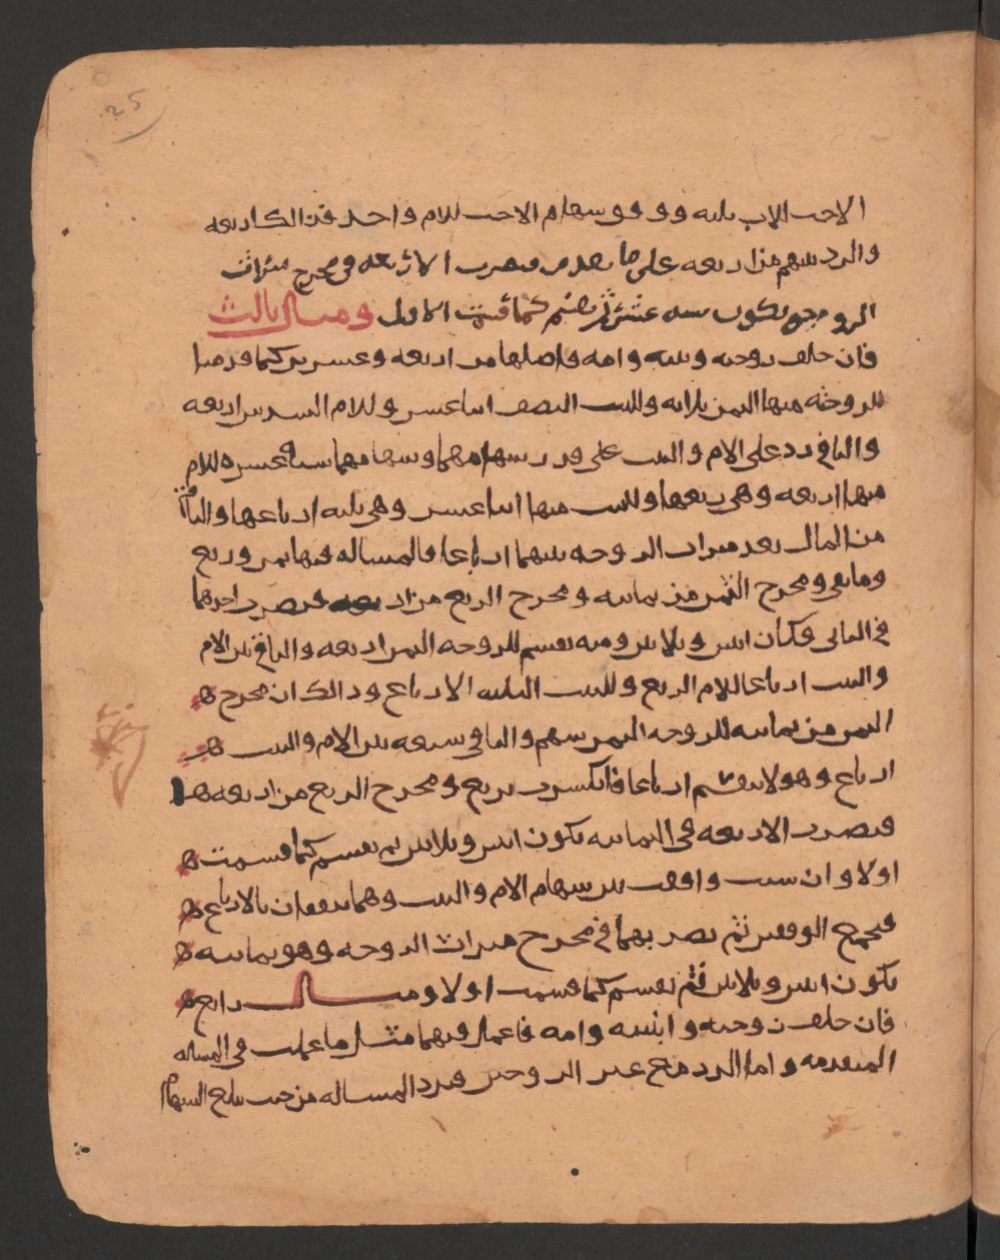 25
الاخت للاب ثلثه ووفق سهام الاخت للام واحد فذالك اربعه
والرد سهم من اربعه على ما تقدم فتضرب الاربعه في مخرج ميراث
الزوجه تكون سته عشر ثم تقسم كما قسمت الاول ومسال ثالث
فان خلف زوجه وبنته وامه فاصلها من اربعه وعشرين كما قدمنا
للزوجه منها الثمن ثلاثه وللبنت النصف اثنا عشر وللام السدس اربعه
والباقي رد على الام والبنت على قدر سهامهما وسهامهما سته عشره للام
منها اربعه وهي ربعها وللبنت منها اثنا عشر وهي ثلثه ارباعها والباقي
من المال بعد ميراث الزوجه بينهما ارباعا فالمساله فيها ثمن وربع
وما بقي ومخرج الثمن من ثمانيه ومخرج الربع من اربعه فتضرب احدهما
في الثاني فكان اثنين وثلاثين ومنه تقسم للزوجه الثمن اربعه والباقي بين الام
والبنت ارباعا للام الربع وللبنت الثلثه الارباع وذالك ان مخرج
الثمن من ثمانيه للزوجه الثمن سهم والباقي سبعه بين الام والبنت
ارباع وهو لا ينقسم ارباعا فانكسرت بربع ومخرج الربع من اربعه
فتضرب الاربعه في الثمانيه تكون اثنين وثلاثين ثم تقسم كما قسمت
اولا وان شيت وافقت بين سهام الام والبنت وهما يتفقان بالارباع
فتجمع الوفقين ثم تضربهما في مخرج ميراث الزوجه وهو ثمانيه
تكون اثنين وثلاثين ثم تقسم كما قسمت اولا ومسال رابع
فان خلف زوجته وابنته وامه فاعمل فيهما مثل ما عملت في المساله
المتقدمه واما الرد مع غير الزوجين فترد المساله من حيث تبلغ السهام